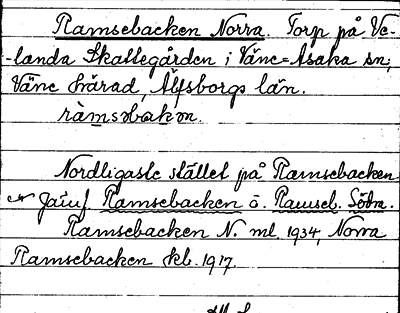 Ramsebacken Norra. Torp på Ve-
-landa Skattegården i Väne-Åsaka sn,
Väne härad, Älfsborgs län.
ràmsəbakən.
Nordligaste stället på Ramsebacken
Jämf Ramsebacken o. Ramseb. Södra.
Ramsebacken N. ml. 1934, Norra
Ramsebacken kb. 1917.